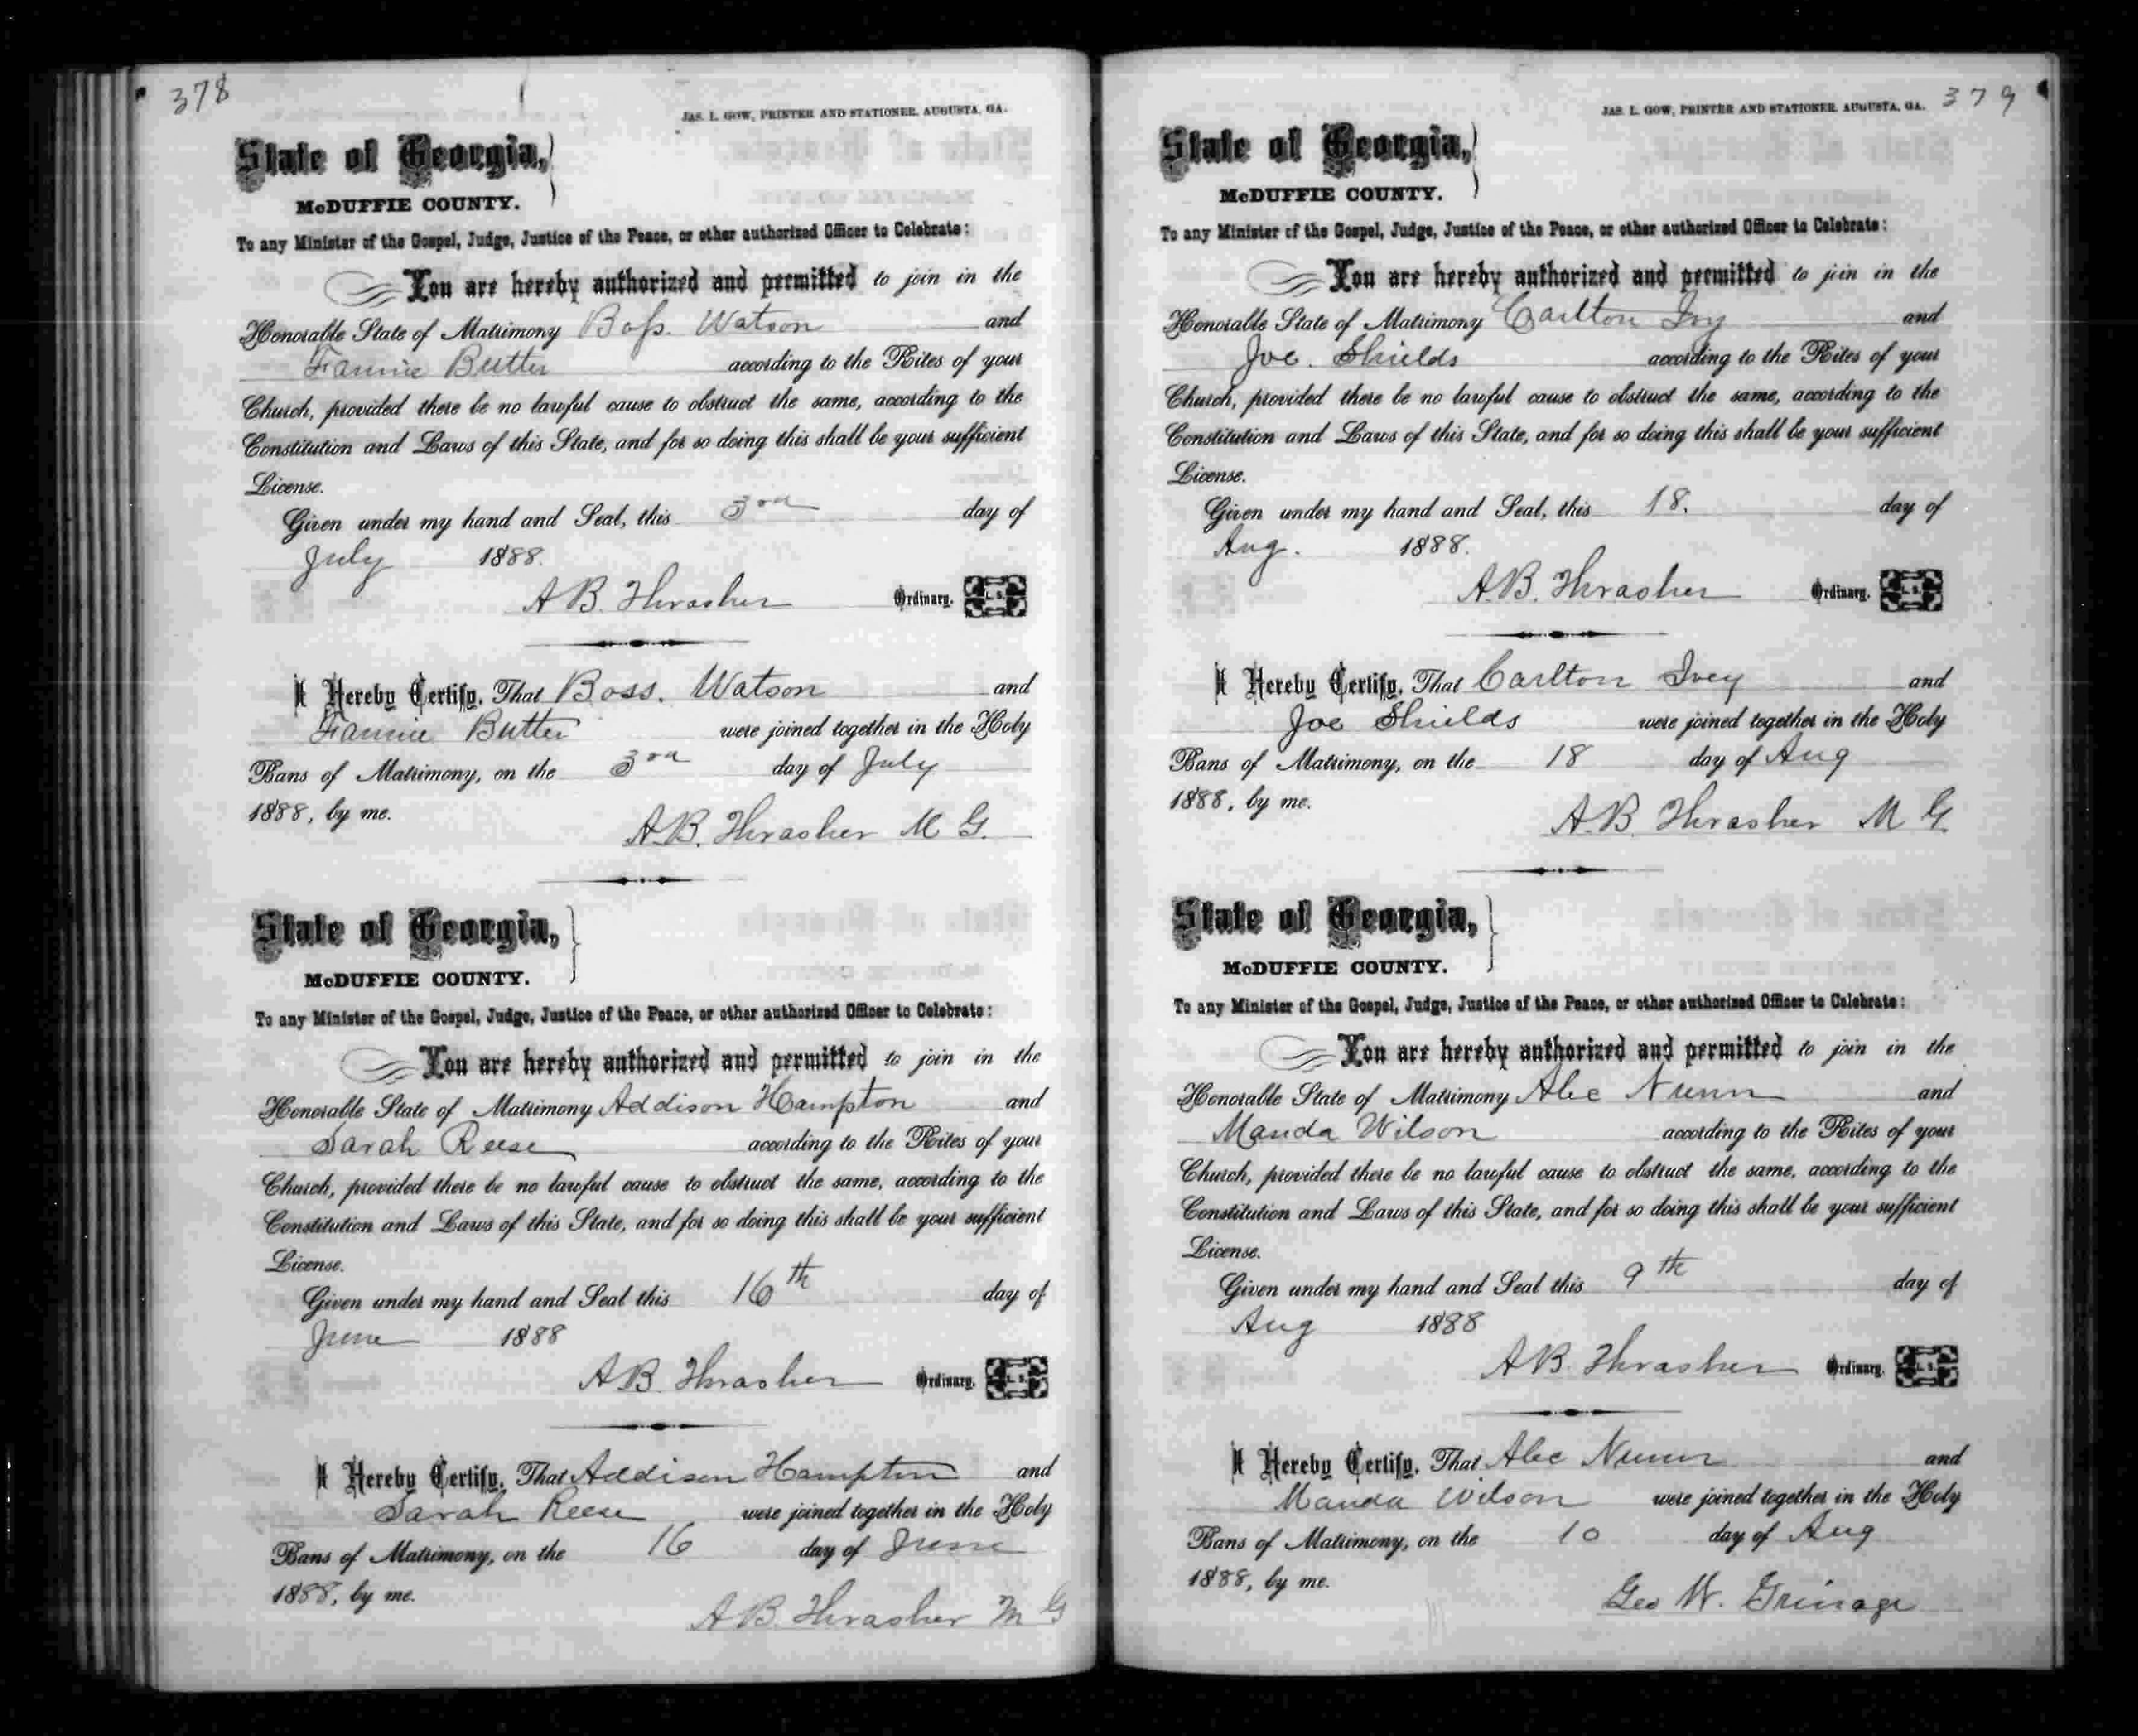 378
JAS. L. GOW, PRINTER AND STATIONER, AUGUSTA, GA.
State of Georgia,
McDUFFIE COUNTY.
To any Minister of the Gospel, Judge, Justice of the Peace, or other authorized Officer to Celebrate:
You are hereby authorized and permitted to join in the
Honorable State of Matrimony Boss. Watson and
Fannie Butler according to the Rites of your
Church, provided there be no lawful cause to obstruct the same, according to the
Constitution and Laws of this State, and for so doing this shall be your sufficient
License.
Given under my hand and Seal, this 3rd day of
July 1888.
A B. Thrasher Ordinary. L. S.
I Hereby Certify, That Boss. Watson and
Fannie Butler were joined together in the Holy
Bans of Matrimony, on the 3rd day of July
1888, by me.
A.B. Thrasher M G.
State of Georgia,
McDUFFIE COUNTY.
To any Minister of the Gospel, Judge, Justice of the Peace, or other authorized Officer to Celebrate:
You are hereby authorized and permitted to join in the
Honorable State of Matrimony Addison Hampton and
Sarah Reese according to the Rites of your
Church, provided there be no lawful cause to obstruct the same, according to the
Constitution and Laws of this State, and for so doing this shall be your sufficient
License.
Given under my hand and Seal this 16th day of
June 1888
A B. Thrasher Ordinary. L. S.
I Hereby Certify, That Addison Hampton and
Sarah Reese were joined together in the Holy
Bans of Matrimony, on the 16 day of June
1888, by me.
A B. Thrasher M G
JAS. L. GOW, PRINTER AND STATIONER, AUGUSTA, GA. 379
State of Georgia,
McDUFFIE COUNTY.
To any Minister of the Gospel, Judge, Justice of the Peace, or other authorized Officer to Celebrate:
You are hereby authorized and permitted to join in the
Honorable State of Matrimony Carlton Ivy and
Joe. Shields according to the Rites of your
Church, provided there be no lawful cause to obstruct the same, according to the
Constitution and Laws of this State, and for so doing this shall be your sufficient
License.
Given under my hand and Seal, this 18. day of
Aug. 1888.
A.B. Thrasher Ordinary. L. S.
I Hereby Certify, That Carlton Ivey and
Joe Shields were joined together in the Holy
Bans of Matrimony, on the 18 day of Aug
1888, by me.
A.B. Thrasher M G.
State of Georgia,
McDUFFIE COUNTY.
To any Minister of the Gospel, Judge, Justice of the Peace, or other authorized Officer to Celebrate:
You are hereby authorized and permitted to join in the
Honorable State of Matrimony Alec Nunn and
Manda Wilson according to the Rites of your
Church, provided there be no lawful cause to obstruct the same, according to the
Constitution and Laws of this State, and for so doing this shall be your sufficient
License.
Given under my hand and Seal this 9th day of
Aug 1888
A B. Thrasher Ordinary. L. S.
I Hereby Certify, That Alec Nunn and
Manda Wilson were joined together in the Holy
Bans of Matrimony, on the 10 day of Aug
1888, by me.
Geo W. Grinage